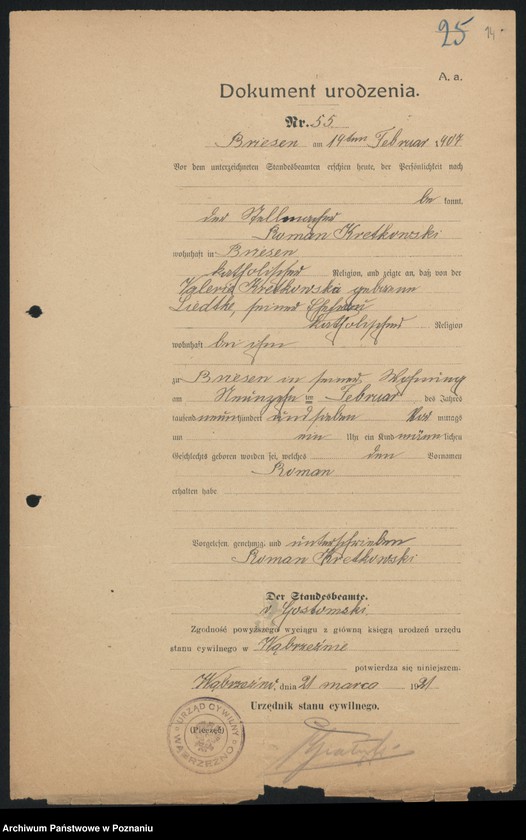 25 14
A. a.
Dokument urodzenia.
Nr. 55
Briesen am 19ten Februar 1907
Vor dem unterzeichneten Standesbeamten erschien heute, der Persönlichkeit nach
be kannt,
der Stellmacher
Roman Kretkowski
wohnhaft in Briesen
katholischer Religion, und zeigte an, daß von der
Valeria Kretkowski geborene
Liedtke, seiner Ehefrau
katholischer Religion
wohnhaft bei ihm
zu Briesen in seiner Wohnung
am Neunzehn ten Februar des Jahres
tausend neunhundert und sieben Vor mittags
um ein Uhr ein Kind männlichen
Geschlechts geboren worden sei, welches den Vornamen
Roman
erhalten habe
Vorgelesen, genehmig. und unterschrieben
Roman Kretkowski
Der Standesbeamte.
v. Gostomski
Zgodność powyższego wyciągu z główną księgą urodzeń urzędu
stanu cywilnego w Wąbrzeźnie
potwierdza się niniejszem.
Wąbrzeźno, dnia 21 marca 1921
Urzędnik stanu cywilnego.
URZĄD CYWILNY
(Pieczęć)
WĄBRZEŹNO
Archiwum Państwowe w Poznaniu